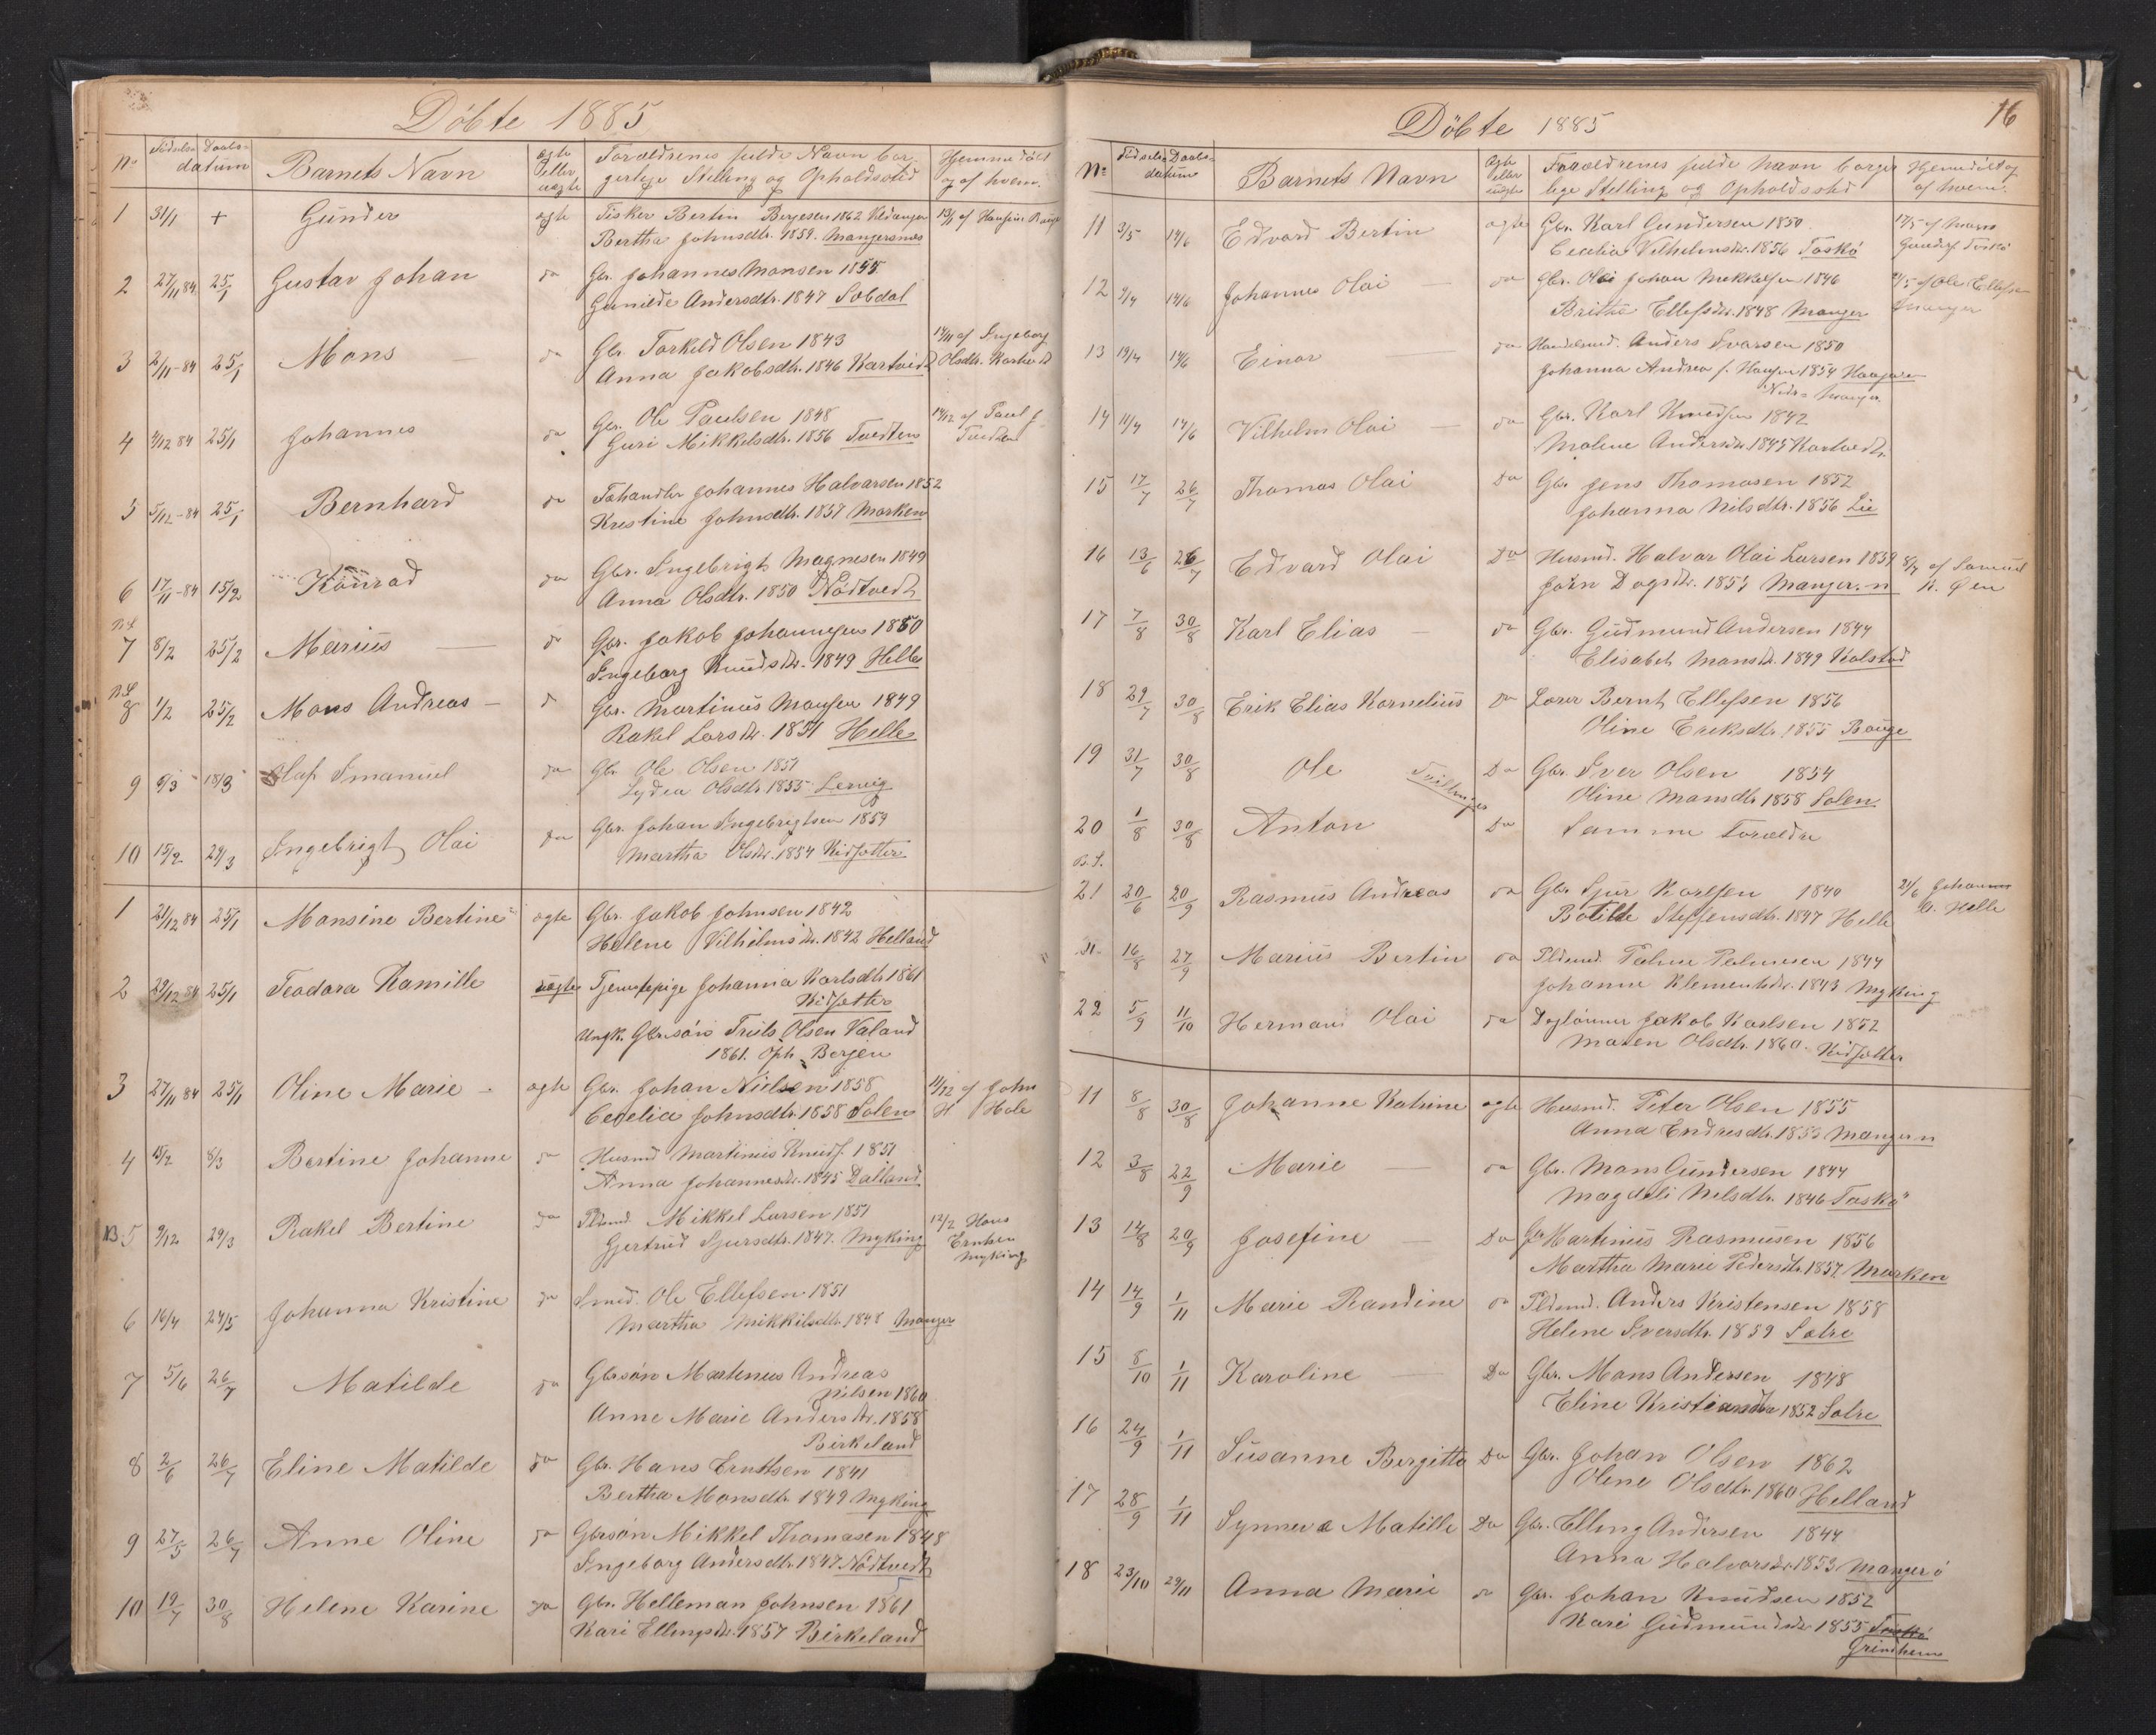 Döbte 1885
No Födsels Daabs- datum Barnets Navn ægte eller uægte Forældrenes fulde Navn bor- gerlige Stilling og Opholdssted Hjemme döbt og af hvem.
1 31/1 + Gunder ægte Fisker Bertin Bergesen 1862
Bertha Johnsdtr. 1859. Mangersnes
2 27/11 84 25/1 Gustav Johan do Gbr. Johannes Monsen 1855
Gunilde Andersdtr. 1847 Sobdal
3 2/11-84 25/1 Mons do Gbr. Torkild Olsen 1843 14/11 af Ingeborg
Anna Jakobsdtr. 1846 Kartveit Olsdtr. Kartveit
4 4/12 84 25/1 Johannes do Gbr. Ole Paulsen 1848 14/12 af Paul J.
Guri Mikkelsdtr. 1856 Tuedten Tuedten
5 5/12-84 25/1 Bernhard do Johannes Halvarsen 1852
Kristine Johnsdtr. 1857 Marken
6 17/11-84 15/2 Konrad do Gbr. Ingebrigt Magnesen 1849
Anna Olsdtr. 1850 Nödtvedt
7 8/2 25/2 Marius do Gbr. Jakob Johannesen 1850
Ingeborg Knudsdtr. 1849 Helle
8 1/2 25/2 Mons Andreas d Gbr. Martinus Monsen 1849
Rakel Larsdtr. 1851 Helle
9 5/3 18/3 Olaf Imanuel do Gbr Ole Olsen 1851
Lydia Olsdtr 1855 Lervig
10 15/2 29/3 Ingebrigt Olai do Gbr. Johan Ingebrigtsen 1859
Martha Olsdtr. 1854 Kidsetter
1 21/12 84 25/1 Monsine Bertine ægte Gbr. Jakob Johnsen 1842
Helene Vilhelmsdtr. 1842 Helland
2 29/12 84 25/1 Teodora Kamille uægte Tjenestepige Johanna Karlsdtr 1861
Kidsetter
Ungk. Gbrsön Truls Olsen Valand
1861. Oph. Bergen
3 27/11 84 25/1 Oline Marie ægte Gbr. Johan Nielsen 1858 11/12 af John
Cecelia Johnsdtr. 1858 Solen H Hole
4 15/2 8/3 Bertine Johanne do Husmd Martinus Knuds. 1851
Anna Johannesdtr. 1845 Dalland
NB 5 9/12 29/3 Rakel Bertine do Pldsmd. Mikkel Larsen 1851 12/2 Hans
Gjertrud Sjursdtr. 1847. Myking Ernsten
Myking
6 16/4 24/5 Johanna Kristine do Smed. Ole Ellefsen 1851
Martha Mikkelsdtr. 1848 Manger
7 5/6 26/7 Matilde do Gbrsön Martinus Andreas
Nilsen 1860
Anne Marie Andersdtr. 1858
Birkeland
8 2/6 26/7 Eline Matilde do Gbr. Hans Erntsen 1841
Bertha Monsdtr. 1849 Myking
9 27/5 26/7 Anne Oline do Gbrsön Mikkel Thomasen 1848
Ingeborg Andersdtr. 1847. Nödtvedt
10 19/7 30/8 Helene Karine do Gbr. Helleman Johnsen 1861
Kari Ellingsdtr. 1857 Birkeland
16
Döbte 1885
No Födsels Daabs- datum Barnets Navn ægte eller uægte Forældrenes fulde Navn borger lige Stilling og Opholdssted Hjemedöbt og af hvem.
11 3/5 14/6 Edvard Bertin ægte Gbr. Karl Gundersen 1850. 17/5 af Mons
Cecelia Vilhelmsdtr. 1856 Toskö Gunders. Toskö
12 9/4 14/6 Johannes Olai do Gbr. Olai Johan Mekkelsen 1846 af Ole Ellefsen
Britha Ellefsdtr. 1848 Manger Manger
13 19/4 14/6 Einar do Handelsmd. Anders Ivarsen 1850
Johanna Andrea f. Hansen 1854
Nedre Manger.
14 11/4 14/6 Vilhelm Olai do Gbr. Karl Knudsen 1842
Malene Andersdtr. 1845 Kartvedt.
15 17/7 26/7 Thomas Olai Do Gbr Jens Thomasen 1852
Johanna Nilsdtr. 1856 Lie
16 13/6 26/7 Edvard Olai Do Husmd. Halvar Olai Larsen 1859 8/7 af Samuel
Jorn Dagsdtr. 1853 Manger. n N. Öen
17 7/8 30/8 Karl Elias do Gbr. Gudmund Andersen 1844
Elisabet Monsdtr. 1849 Kolstad
18 29/7 30/8 Erik Elias Kornelius do Lærer Bernt Ellefsen 1856
Oline Eriksdtr. 1855 Bauge
19 31/7 30/8 Ole Tvillinger Do Gbr. Iver Olsen 1854
Oline Monsdtr 1858 Solen
20 1/8 30/8 Anton Do Samme Forældre
21 20/6 20/9 Rasmus Andreas do Gbr Sjur Karlsen 1840 21/6 Johannes
Botilde Steffensdtr. 1847 Helle Helle
16/8 27/9 Marius Bertin do Pldsmd. Palme Palmesen 1844
Johanne Klementsdtr. 1843 Myking
22 5/9 11/10 Herman Olai do Daglönner Jakob Karlsen 1852
Maren Olsdtr. 1860. Kidsetter
11 8/8 30/8 Johanne Katrine ægte Husmd. Peter Olsen 1855
Anna Endresdtr. 1853 Manger n
12 3/8 22/9 Marie do Gbr. Mons Gundersen 1844
Magdeli Nelsdtr. 1846 Toskö
13 14/8 20/9 Josefine Do Gbr Martinus Rasmusen 1856
Martha Marie Pedersdtr 1857 Marken
14 14/9 1/11 Marie Randine do Pldsmd. Anders Kristensen 1858
Helene Iversdtr. 1859 Sætre
15 8/10 1/11 Karoline Do Gbr. Mons Andersen 1848
Eline Kristiansdtr 1852 Sætre
16 24/9 1/11 Susanne Bergitta Do Gbr. Johan Olsen 1862
Olene Olsdtr. 1860 Helland
17 28/9 1/11 Synneva Matilde Do Gbr. Elling Andersen 1844
Anna Halvorsdtr. 1853 Manger ö
18 23/10 29/11 Anna Marie do Gbr. Johan Knudsen 1852
Kari Gudmundsdtr 1855 Toskö
Grindheim